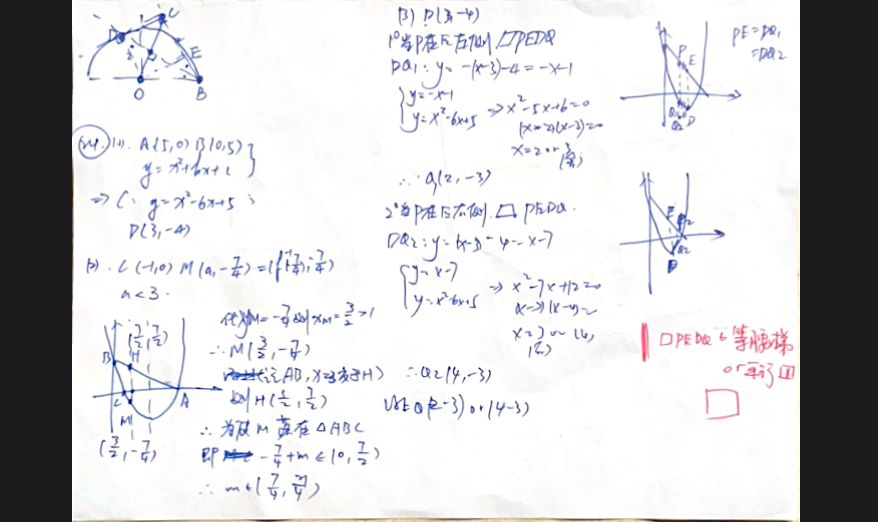 D
C
E
O
B
24. (1). A(5,0) B(0,5)
y=x²+bx+c
⇒ C: y=x²-6x+5
D(3,-4)
(2). C(-1,0) M(a,-7/4)
a<3.
(7/2,7/2)
B
H
C
M
A
(3/2,-7/4)
代入yM=-7/4 则xM=3/2>1
∴M(3/2,-7/4)
则H(3/2,7/2)
落在△ABC
即 -7/4+m∈(0,7/2)
∴ m∈(7/4,21/4)
(3) D(3,-4)
1°当P在E左侧 □PEDQ
DQ₁: y=-(x-3)-4=-x-1
{y=-x-1
y=x²-6x+5 ⇒ x²-5x+6=0
(x-2)(x-3)=0
x=2 or 3
(舍)
∴ Q(2,-3)
2°当P在E右侧. □PEDQ.
DQ₂: y=(x-3)-4=x-7
{y=x-7
y=x²-6x+5 ⇒ x²-7x+12=0
x=3 or 4
(舍)
∴Q₂(4,-3)
Q(2,-3) or (4,-3)
PE=DQ₁
=DQ₂
P
E
Q₁
Q₂
D
E
P₂
Q₂
D
□PEDQ 等腰梯
or 平行四